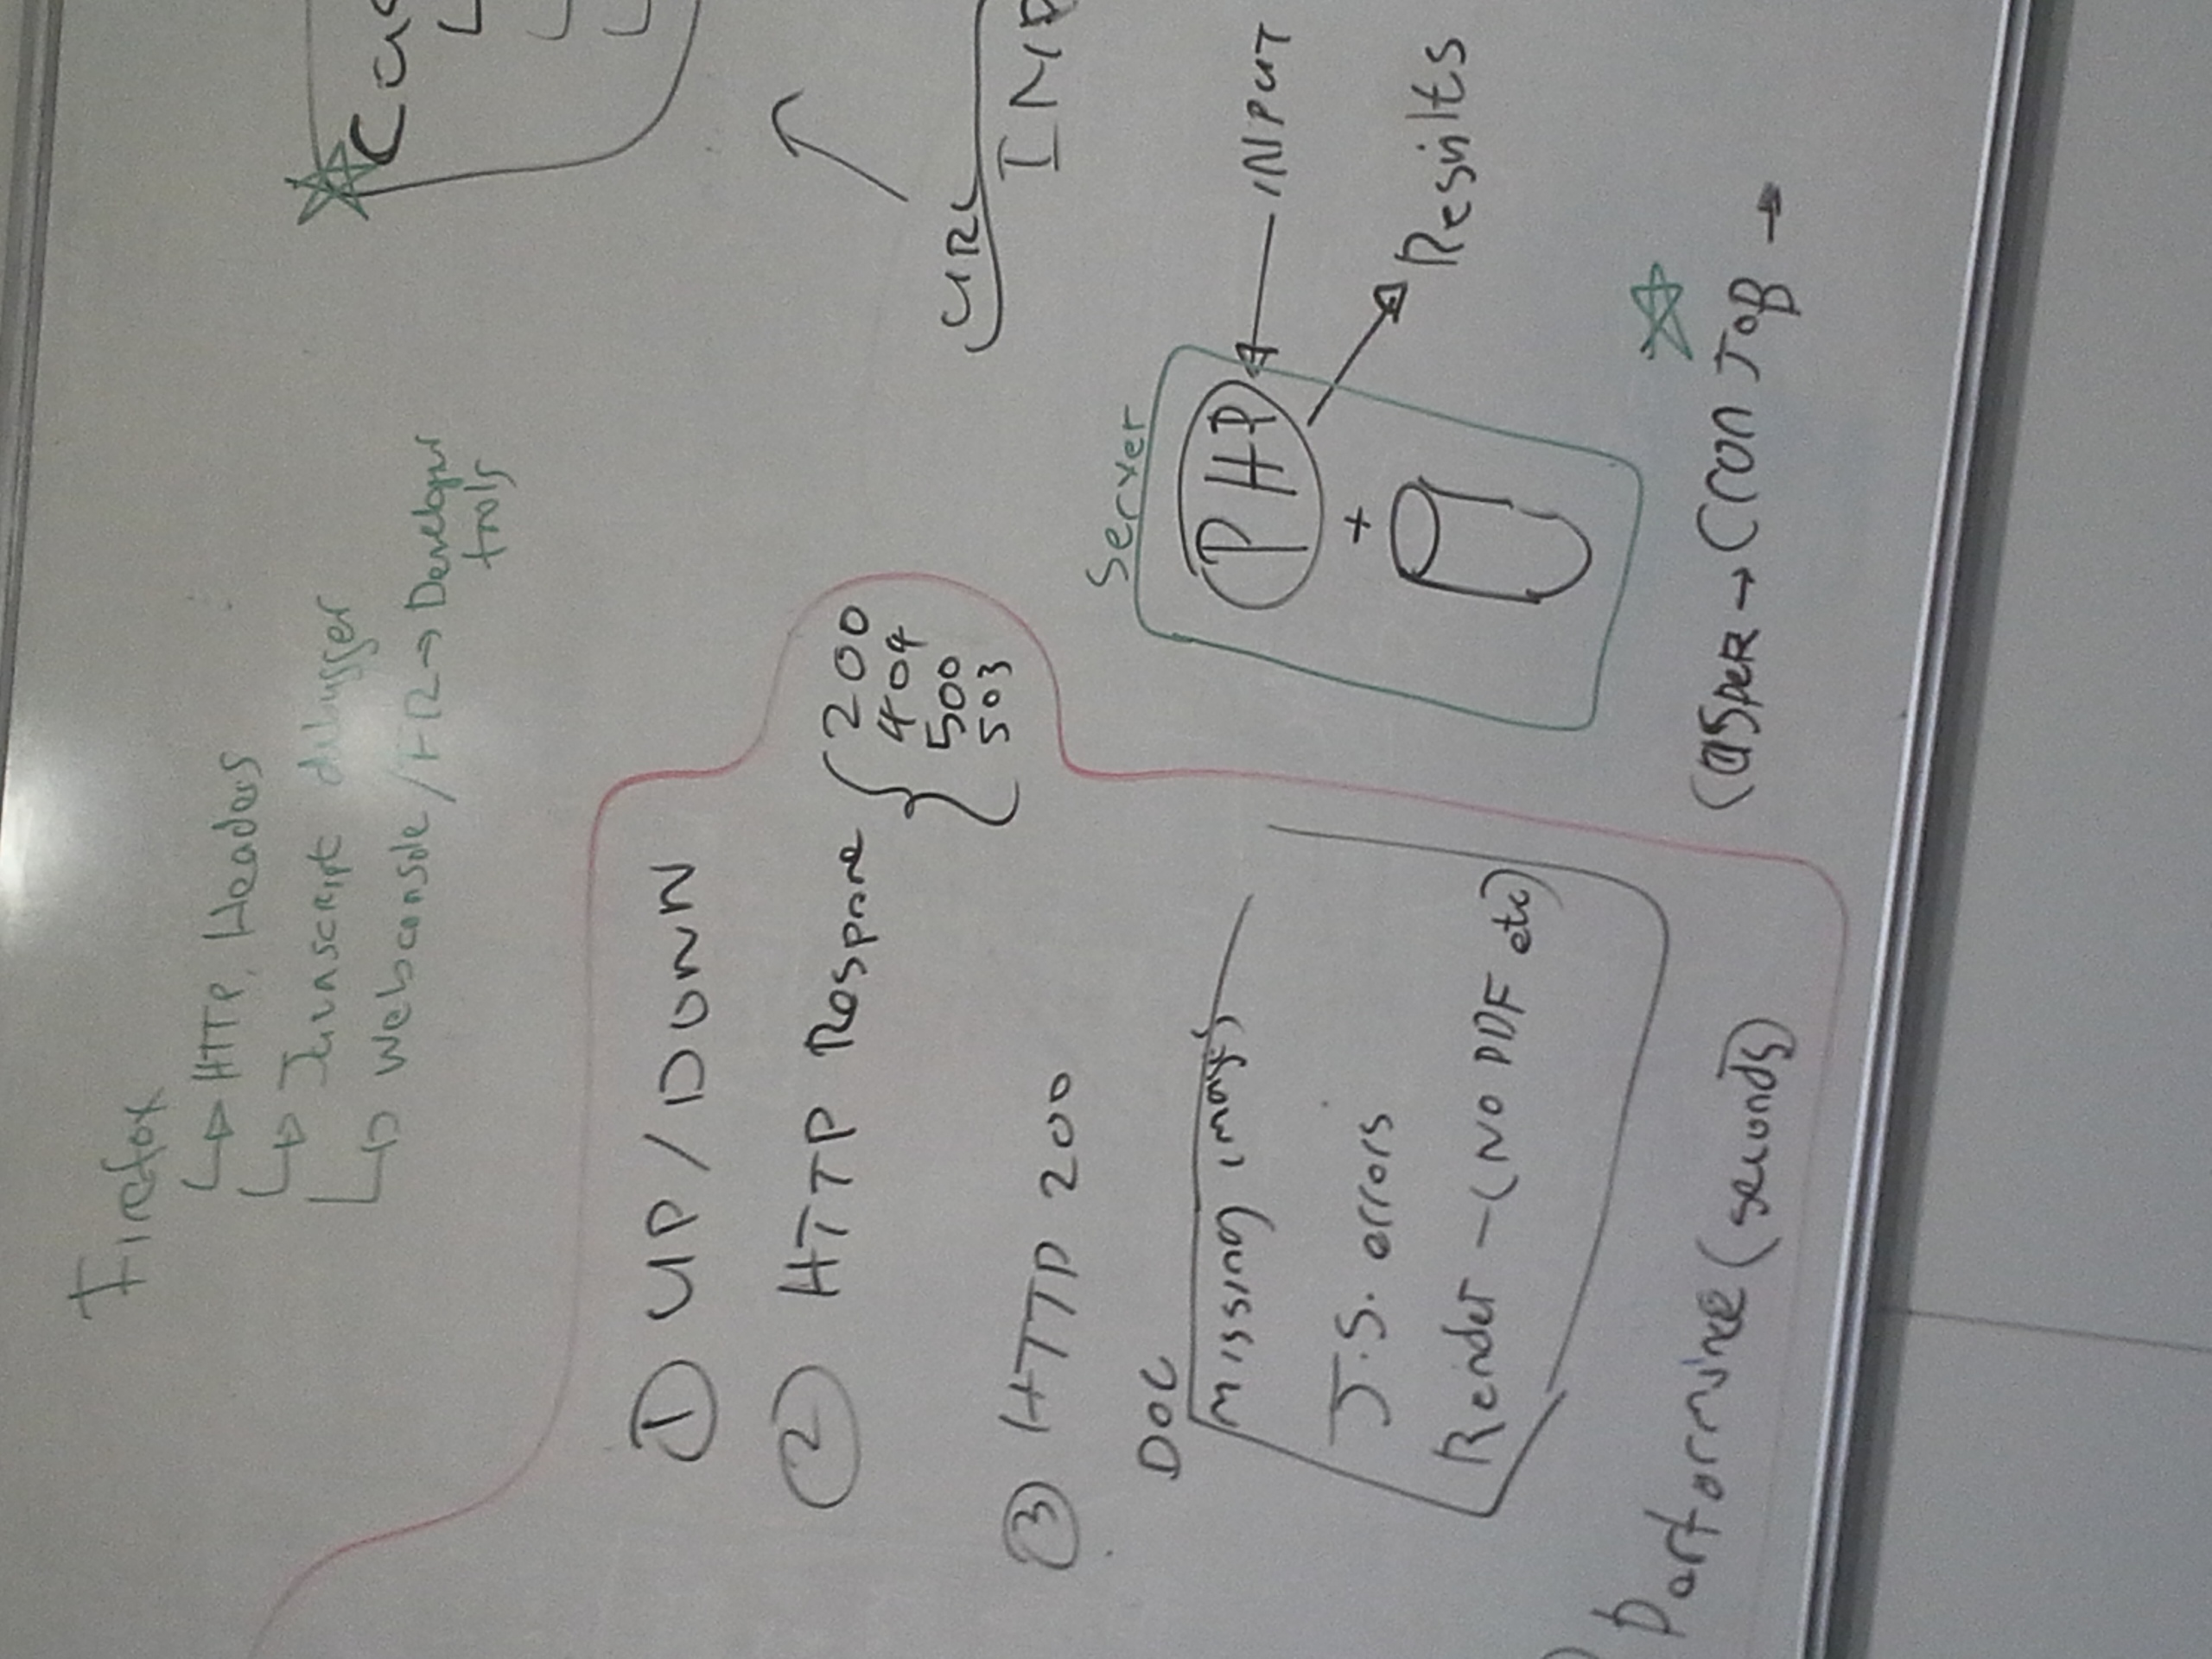 Firefox
HTTP Headers
Javascript debugger
Webconsole / FR → Developer
tools
① UP / DOWN
② HTTP Response { 200
404
500
503
③ HTTP 200
DOC
Missing images
J.S. errors
Render - (NO PDF etc)
Performance (seconds)
Cas
URL
INP
Server
PHP
INPUT
+
Results
CasPER → Cron JoB →